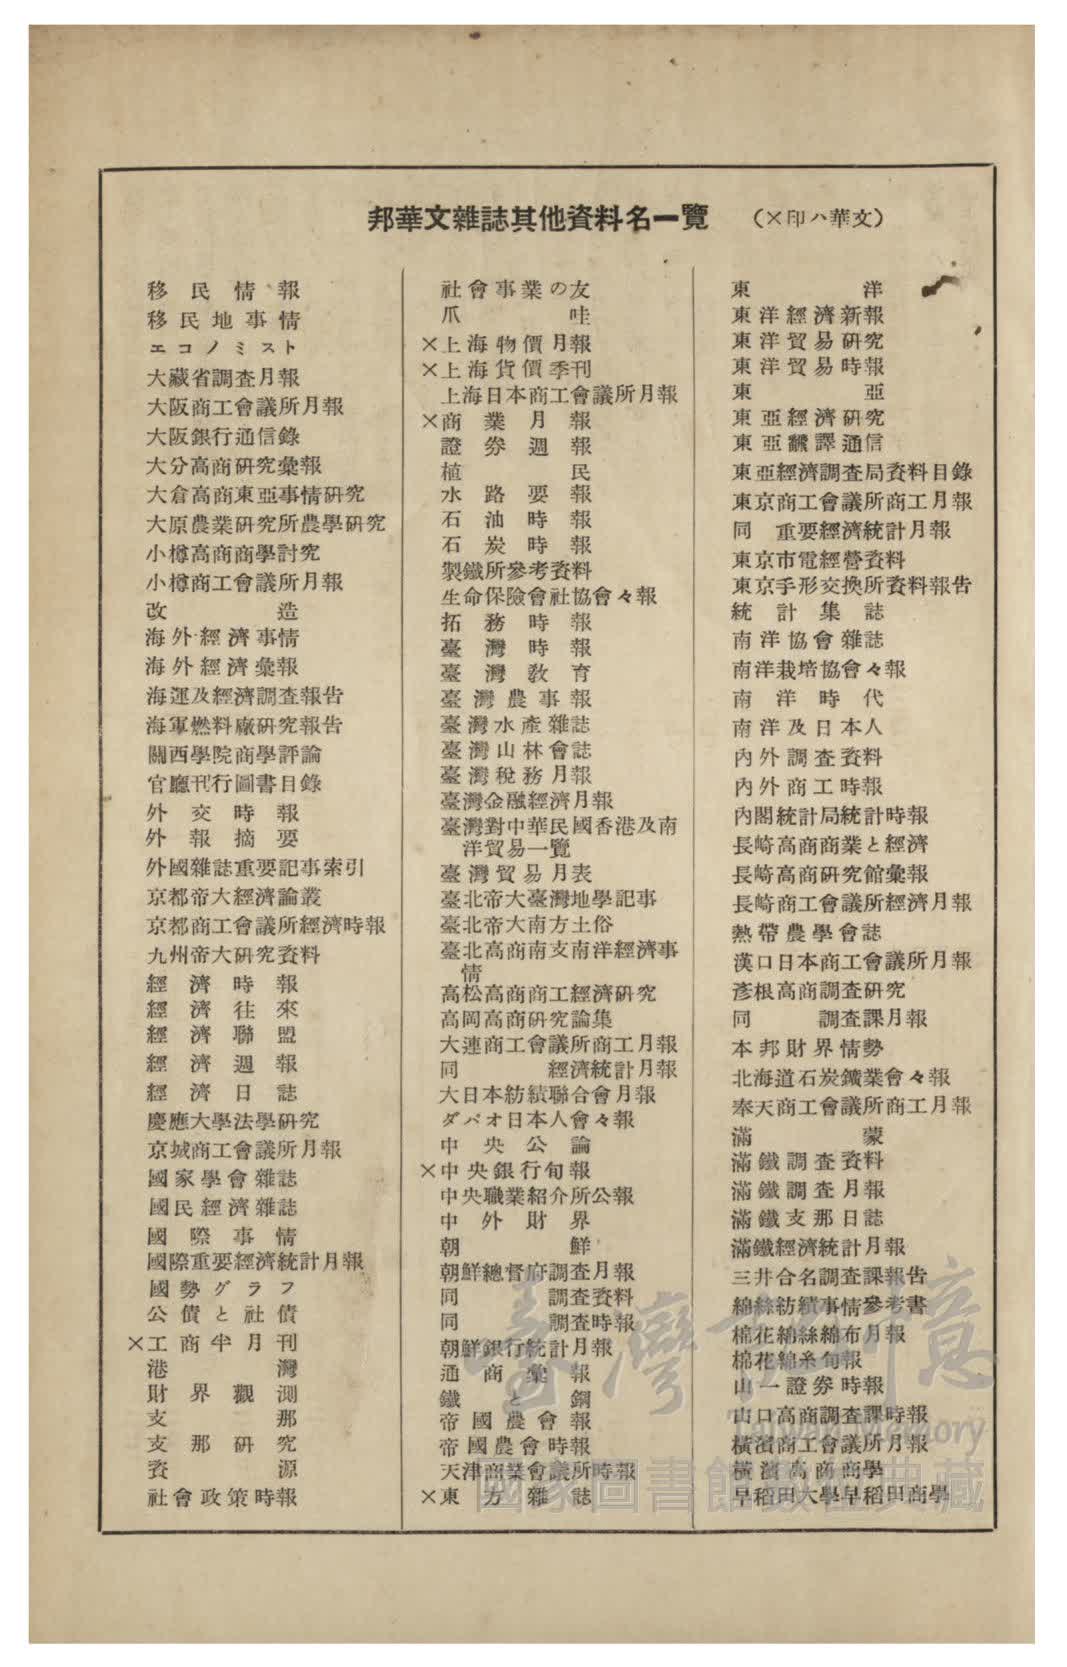 邦華文雜誌其他資料名一覽 (×印ハ華文)
移民情報
移民地事情
エコノミスト
大藏省調査月報
大阪商工會議所月報
大阪銀行通信錄
大分高商研究彙報
大倉高商東亞事情研究
大原農業研究所農學研究
小樽高商商學討究
小樽商工會議所月報
改造
海外經濟事情
海外經濟彙報
海運及經濟調査報告
海軍燃料廠研究報告
關西學院商學評論
官廳刊行圖書目錄
外交時報
外報摘要
外國雜誌重要記事索引
京都帝大經濟論叢
京都商工會議所經濟時報
九州帝大研究資料
經濟時報
經濟往來
經濟聯盟
經濟週報
經濟日誌
慶應大學法學研究
京城商工會議所月報
國家學會雜誌
國民經濟雜誌
國際事情
國際重要經濟統計月報
國勢グラフ
公債と社債
×工商半月刊
港灣
財界觀測
支那
支那研究
資源
社會政策時報
社會事業の友
爪哇
×上海物價月報
×上海貨價季刊
上海日本商工會議所月報
×商業月報
證券週報
植民
水路要報
石油時報
石炭時報
製鐵所參考資料
生命保險會社協會々報
拓務時報
臺灣時報
臺灣教育
臺灣農事報
臺灣水產雜誌
臺灣山林會誌
臺灣稅務月報
臺灣金融經濟月報
臺灣對中華民國香港及南
洋貿易一覽
臺灣貿易月表
臺北帝大臺灣地學記事
臺北帝大南方土俗
臺北高商南支南洋經濟事
情
高松高商商工經濟研究
高岡高商研究論集
大連商工會議所商工月報
同 經濟統計月報
大日本紡績聯合會月報
ダバオ日本人會々報
中央公論
×中央銀行旬報
中央職業紹介所公報
中外財界
朝鮮
朝鮮總督府調査月報
同 調査資料
同 調査時報
朝鮮銀行統計月報
通商彙報
鐵と鋼
帝國農會報
帝國農會時報
天津商業會議所時報
×東方雜誌
東洋
東洋經濟新報
東洋貿易研究
東洋貿易時報
東亞
東亞經濟研究
東亞飜譯通信
東亞經濟調査局資料目錄
東京商工會議所商工月報
同 重要經濟統計月報
東京市電經營資料
東京手形交換所資料報告
統計集誌
南洋協會雜誌
南洋栽培協會々報
南洋時代
南洋及日本人
內外調査資料
內外商工時報
內閣統計局統計時報
長崎高商商業と經濟
長崎高商研究館彙報
長崎商工會議所經濟月報
熱帶農學會誌
漢口日本商工會議所月報
彥根高商調査研究
同 調査課月報
本邦財界情勢
北海道石炭鑛業會々報
奉天商工會議所商工月報
滿蒙
滿鐵調査資料
滿鐵調査月報
滿鐵支那日誌
滿鐵經濟統計月報
三井合名調査課報告
綿絲紡績事情參考書
棉花綿絲綿布月報
棉花綿糸旬報
山一證券時報
山口高商調査課時報
橫濱商工會議所月報
橫濱高商商學
早稻田大學早稻田商學
臺灣記憶
Taiwan Memory
國家圖書館數位典藏